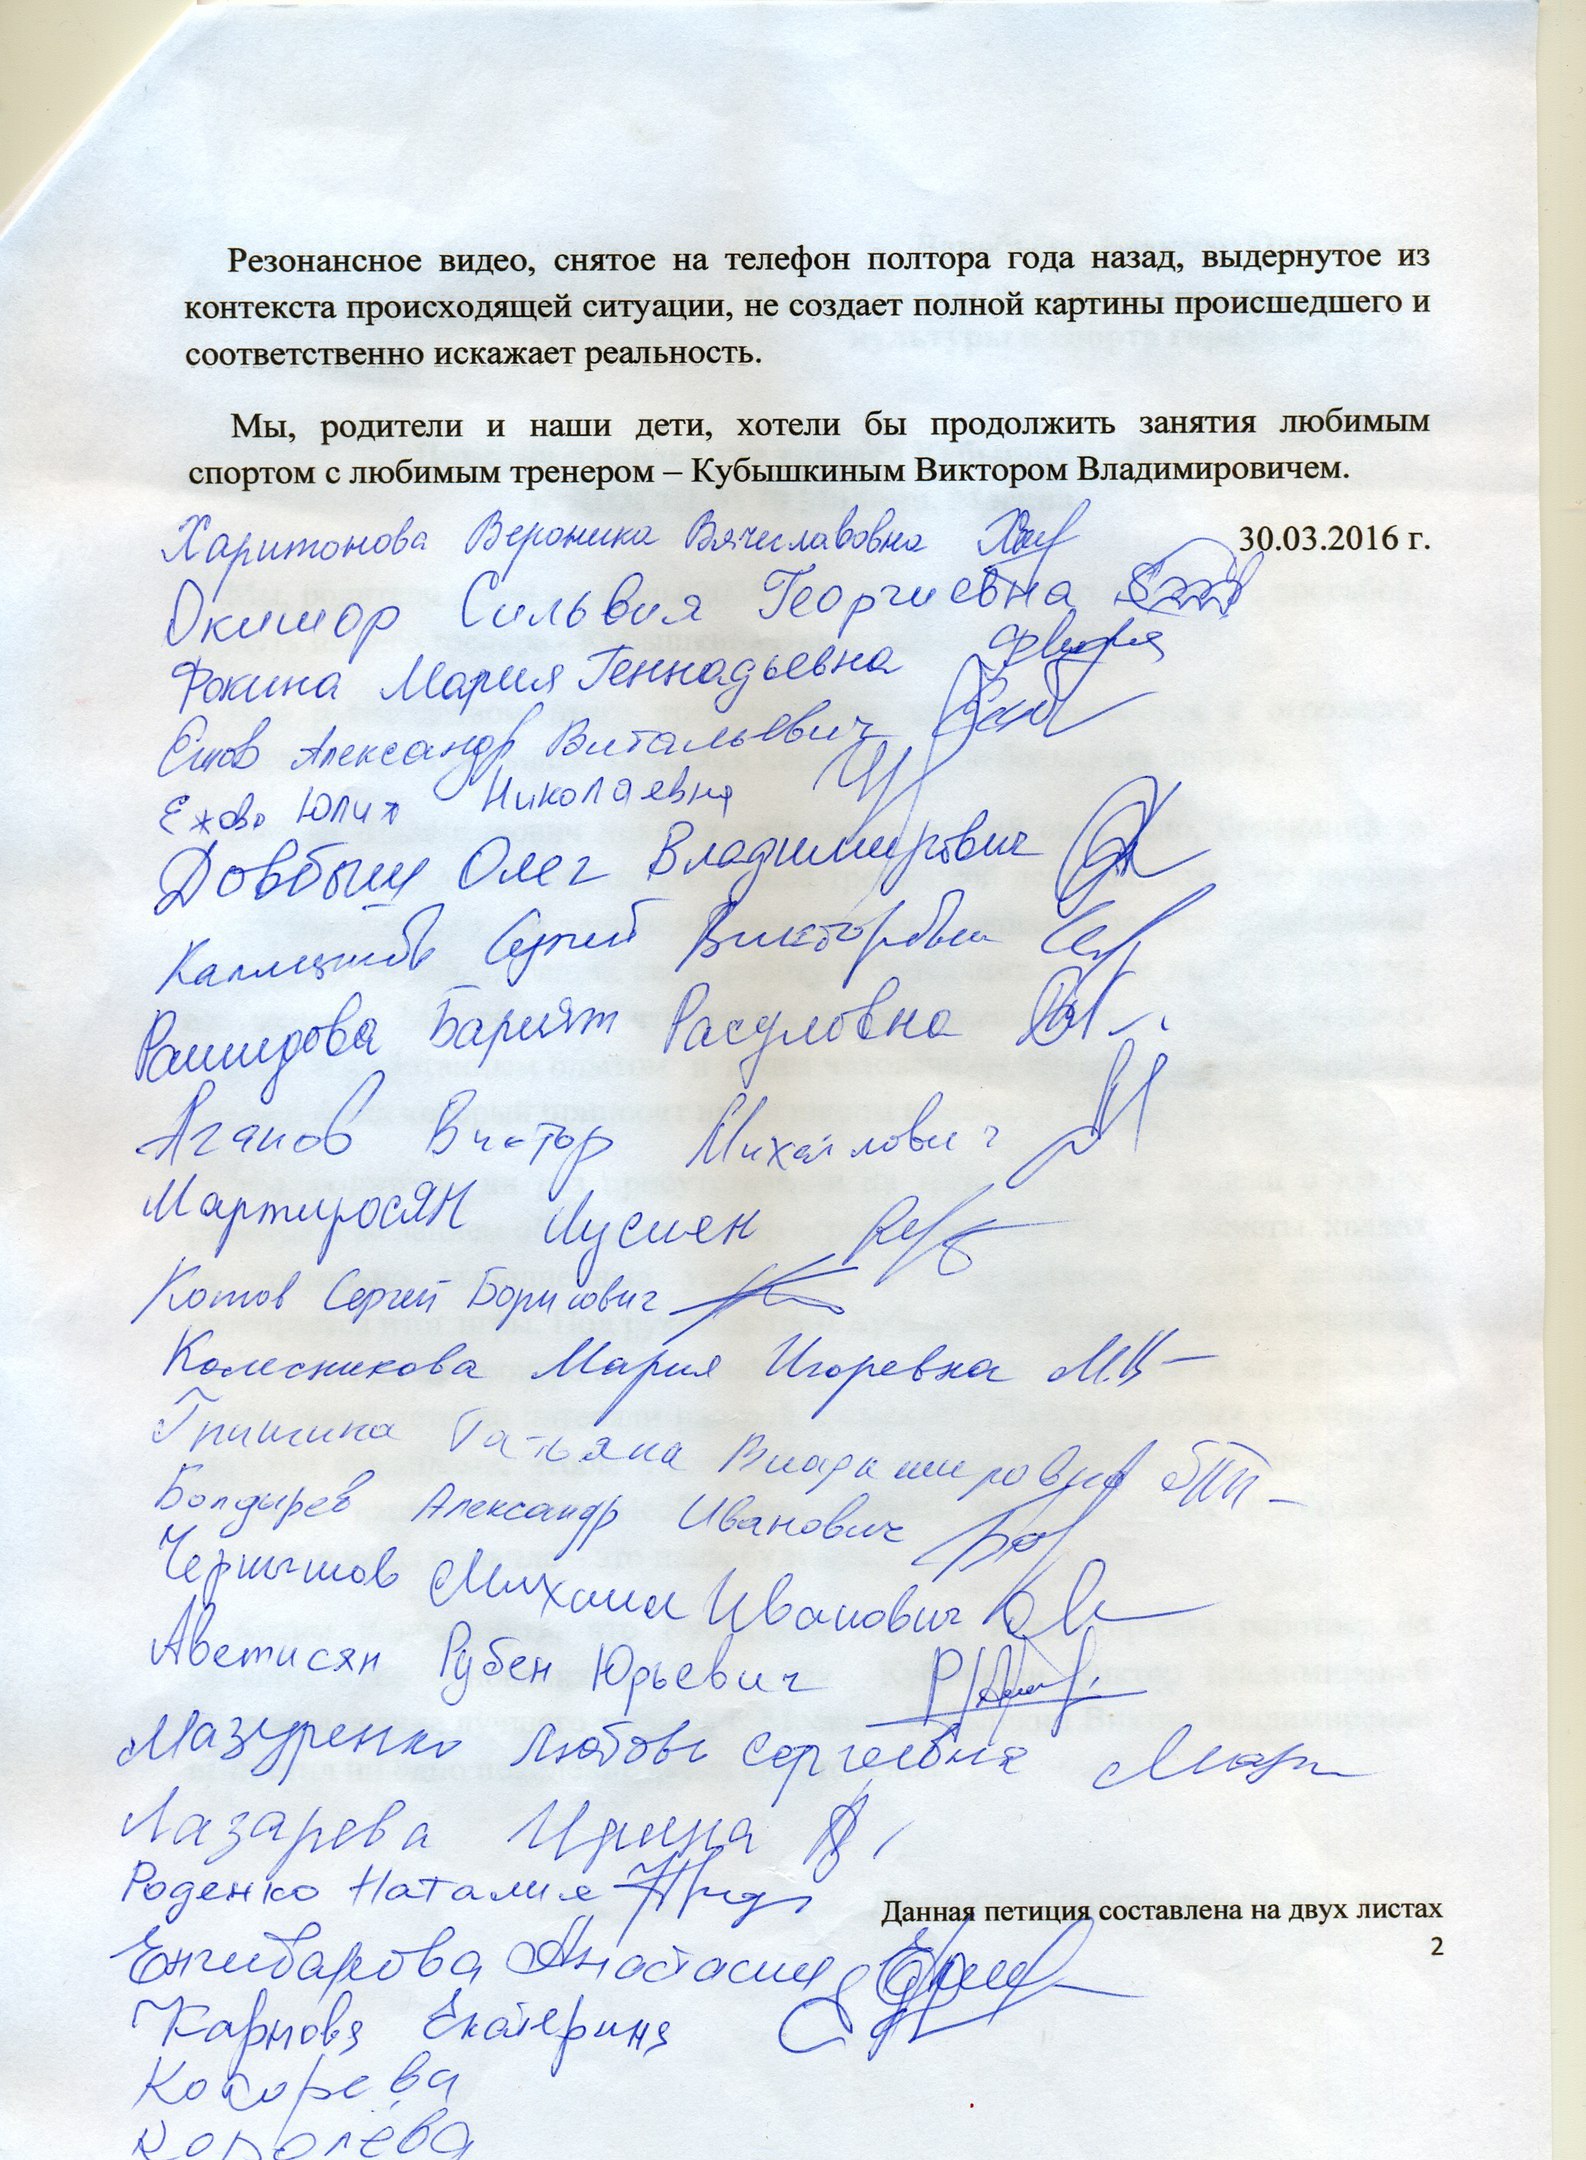 Резонансное видео, снятое на телефон полтора года назад, выдернутое из
контекста происходящей ситуации, не создает полной картины происшедшего и
соответственно искажает реальность.
Мы, родители и наши дети, хотели бы продолжить занятия любимым
спортом с любимым тренером – Кубышкиным Виктором Владимировичем.
30.03.2016 г.
Харитонова Вероника Вячеславовна
Окишор Сильвия Георгиевна
Фокина Мария Геннадьевна
Александр Витальевич
Ежова Юлия Николаевна
Довбыш Олег Владимирович
Сергей Викторович
Рашидова Барият Расуловна
Агапов Виктор Михайлович
Мартиросян Лусиен
Котов Сергей Борисович
Колесникова Мария Игоревна
Гришина Татьяна Владимировна
Болдырев Александр Иванович
Чернышов Михаил Иванович
Аветисян Рубен Юрьевич
Мазуренко Любовь Сергеевна
Лазарева Ирина
Роденко Наталия
Данная петиция составлена на двух листах
2
Енгибарова Анастасия
Карпова Екатерина
Кокорева
Королёва